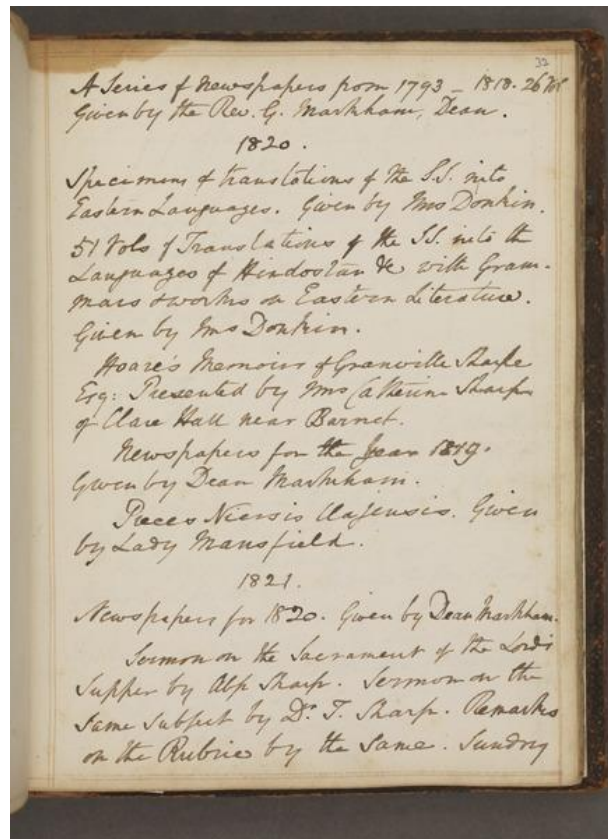 32
A Series of Newspapers from 1793 - 1818. 26 Vol
Given by the Rev. G. Markham, Dean.
1820.
Specimens of translations of the S.S. into
Eastern Languages. Given by Mrs Donkin.
51 Vols of Translations of the S.S. into the
Languages of Hindostan &c with Gram-
mars & works on Eastern Literature.
Given by Mrs Donkin.
Hoare's Memoirs of Granville Sharpe
Esq: Presented by Mrs Catherine Sharp
of Clare Hall near Barnet.
Newspapers for the Year 1819.
Given by Dean Markham.
Preces Niersis Clajensis. Given
by Lady Mansfield.
1821.
Newspapers for 1820. Given by Dean Markham.
Sermon on the Sacrament of the Lord's
Supper by Abp Sharp. Sermon on the
same subject by Dr. T. Sharp. Remarks
on the Rubric by the same. Sundry